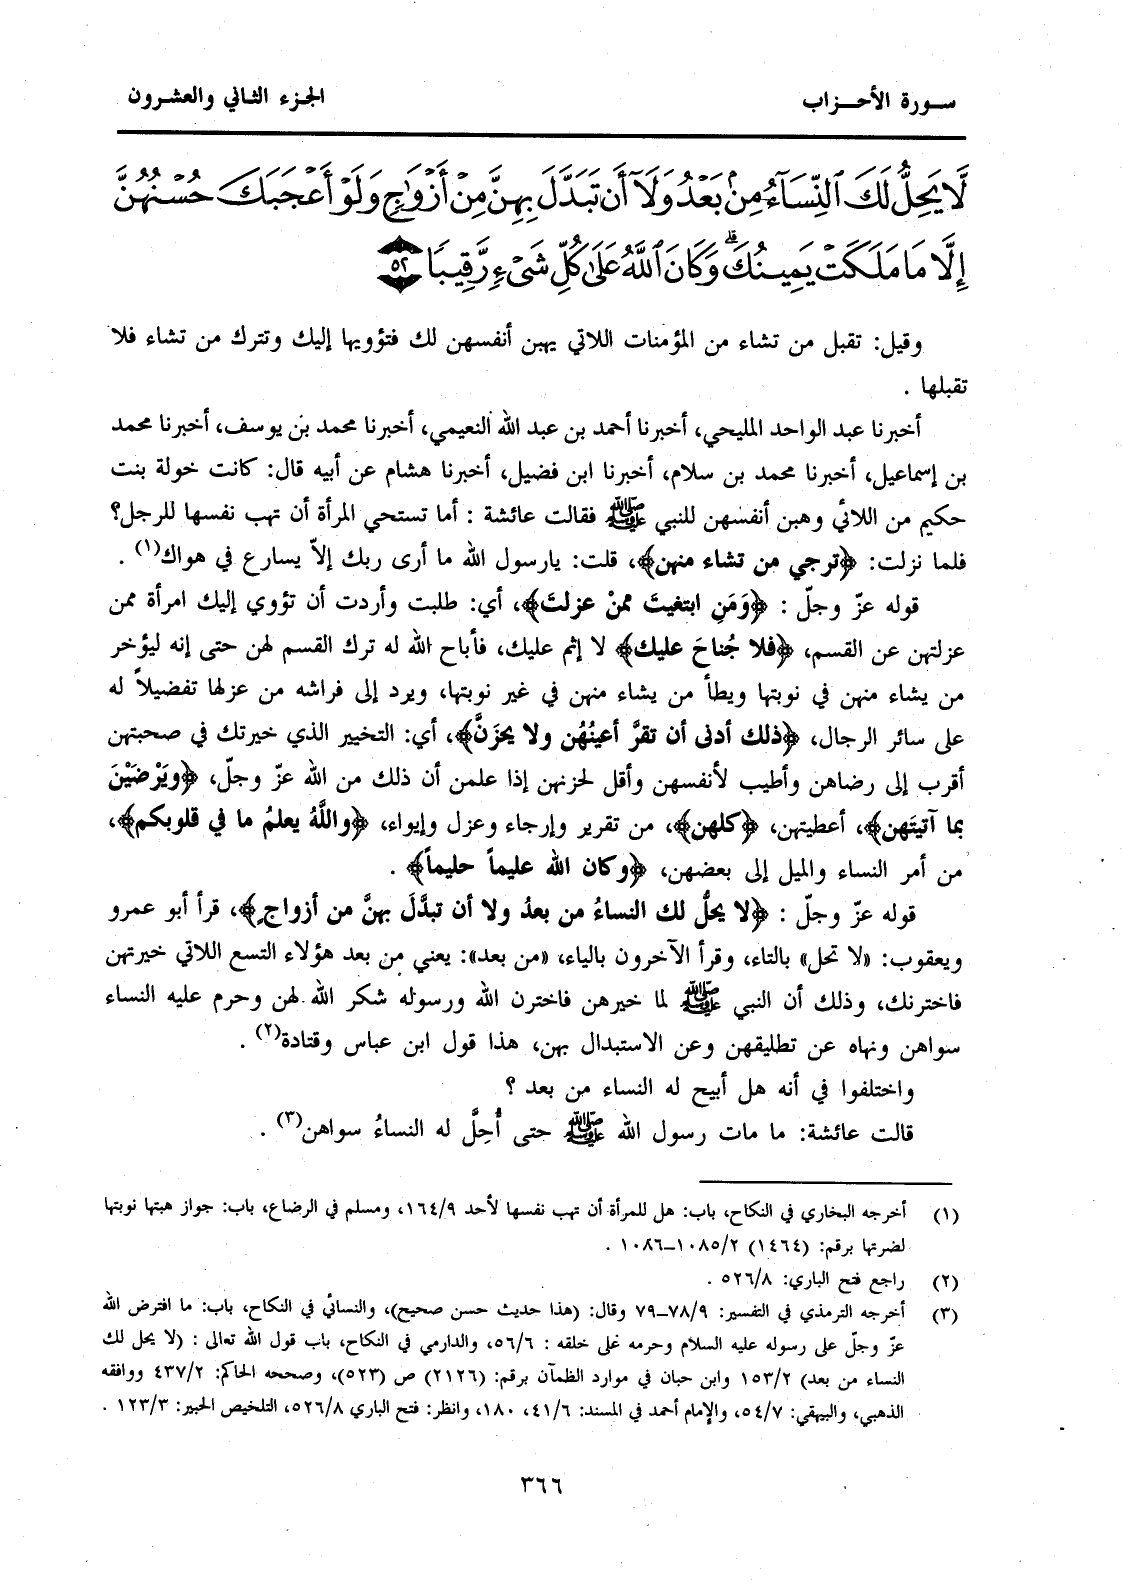 سورة الأحزاب
الجزء الثاني والعشرون
لَّا يَحِلُّ لَكَ ٱلنِّسَآءُ مِنۢ بَعْدُ وَلَآ أَن تَبَدَّلَ بِهِنَّ مِنْ أَزْوَٰجٍ وَلَوْ أَعْجَبَكَ حُسْنُهُنَّ
إِلَّا مَا مَلَكَتْ يَمِينُكَ ۗ وَكَانَ ٱللَّهُ عَلَىٰ كُلِّ شَىْءٍ رَّقِيبًا ٥٢
وقيل: تقبل من تشاء من المؤمنات اللاتي يهبن أنفسهن لك فتؤويها إليك وتترك من تشاء فلا
تقبلها .
أخبرنا عبد الواحد المليحي، أخبرنا أحمد بن عبد الله النعيمي، أخبرنا محمد بن يوسف، أخبرنا محمد
بن إسماعيل، أخبرنا محمد بن سلام، أخبرنا ابن فضيل، أخبرنا هشام عن أبيه قال: كانت خولة بنت
حكيم من اللائي وهبن أنفسهن للنبي ﷺ فقالت عائشة : أما تستحي المرأة أن تهب نفسها للرجل؟
فلما نزلت: ﴿ترجي من تشاء منهن﴾، قلت: يارسول الله ما أرى ربك إلاّ يسارع في هواك(١) .
قوله عزّ وجلّ : ﴿وَمَنِ ابتغيتَ ممنْ عزلتَ﴾، أي: طلبت وأردت أن تؤوي إليك امرأة ممن
عزلتهن عن القسم، ﴿فلا جُناحَ عليك﴾ لا إثم عليك، فأباح الله له ترك القسم لهن حتى إنه ليؤخر
من يشاء منهن في نوبتها ويطأ من يشاء منهن في غير نوبتها، ويرد إلى فراشه من عزلها تفضيلاً له
على سائر الرجال، ﴿ذلك أدنى أن تقرَّ أعينُهُن ولا يحْزَنَّ﴾، أي: التخيير الذي خيرتك في صحبتهن
أقرب إلى رضاهن وأطيب لأنفسهن وأقل لحزنهن إذا علمن أن ذلك من الله عزّ وجلّ، ﴿ويَرْضَيْنَ
بما آتيتَهن﴾، أعطيتهن، ﴿كلهن﴾، من تقرير وإرجاء وعزل وإيواء، ﴿واللَّهُ يعلمُ ما في قلوبكم﴾،
من أمر النساء والميل إلى بعضهن، ﴿وكان الله عليماً حليماً﴾ .
قوله عزّ وجلّ : ﴿لا يحلُّ لك النساءُ من بعدُ ولا أن تبدَّلَ بهنَّ من أزواجٍ﴾، قرأ أبو عمرو
ويعقوب: «لا تحل» بالتاء، وقرأ الآخرون بالياء، «من بعد»: يعني من بعد هؤلاء التسع اللاتي خيرتهن
فاخترنك، وذلك أن النبي ﷺ لما خيرهن فاخترن الله ورسوله شكر الله لهن وحرم عليه النساء
سواهن ونهاه عن تطليقهن وعن الاستبدال بهن، هذا قول ابن عباس وقتادة(٢) .
واختلفوا في أنه هل أبيح له النساء من بعد ؟
قالت عائشة: ما مات رسول الله ﷺ حتى أُحِلَّ له النساءُ سواهن(٣) .
(١) أخرجه البخاري في النكاح، باب: هل للمرأة أن تهب نفسها لأحد ١٦٤/٩، ومسلم في الرضاع، باب: جواز هبتها نوبتها
لضرتها برقم: (١٤٦٤) ١٠٨٥/٢–١٠٨٦ .
(٢) راجع فتح الباري: ٥٢٦/٨ .
(٣) أخرجه الترمذي في التفسير: ٧٨/٩–٧٩ وقال: (هذا حديث حسن صحيح)، والنسائي في النكاح، باب: ما افترض الله
عزّ وجلّ على رسوله عليه السلام وحرمه على خلقه : ٥٦/٦، والدارمي في النكاح، باب قول الله تعالى : (لا يحل لك
النساء من بعد) ١٥٣/٢ وابن حبان في موارد الظمآن برقم: (٢١٢٦) ص (٥٢٣)، وصححه الحاكم: ٤٣٧/٢ ووافقه
الذهبي، والبيهقي: ٥٤/٧، والإمام أحمد في المسند: ٤١/٦، ١٨٠، وانظر: فتح الباري ٥٢٦/٨، التلخيص الحبير: ١٢٣/٣ .
٣٦٦